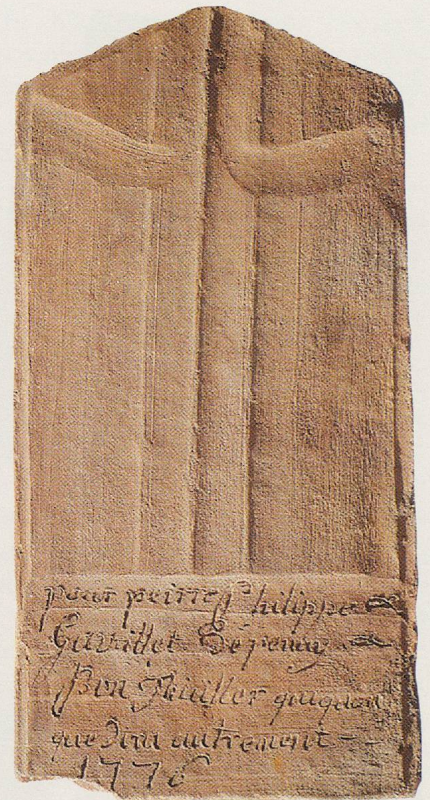 pour peirre philippe
Gavillet De peney
Bon Thuiller quiquon
que Dira autrement
1776